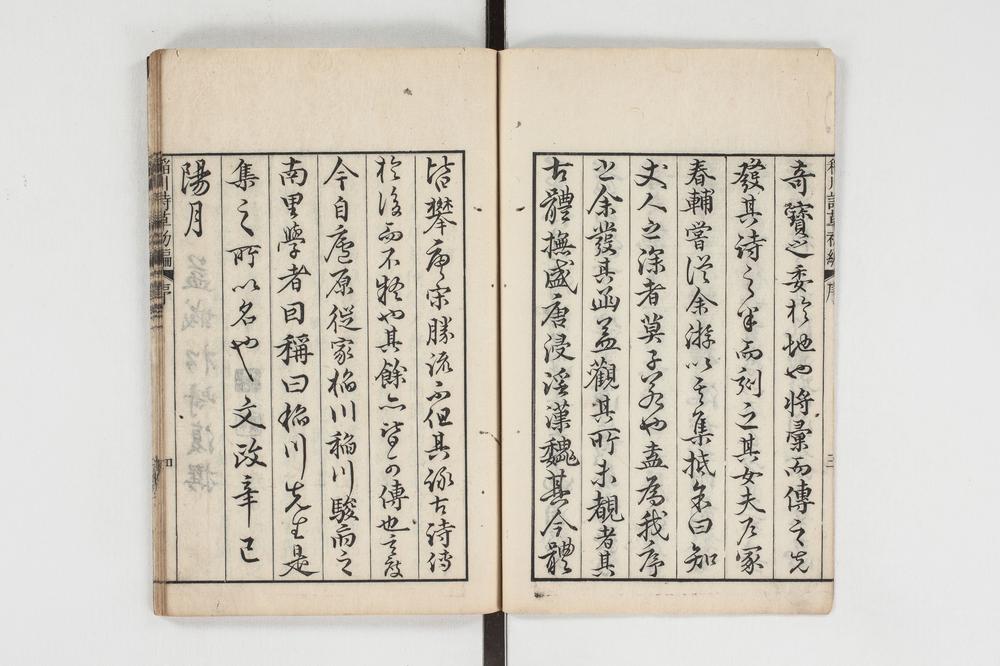 稲川詩草初編 序
三
奇寶之委於地也将彙而傳之先
發其詩之半而刻之其女夫尺冢
春輔嘗從余游以其集抵余曰知
丈人之深者莫子若也盍為我序
之余發其函蓋觀其所未覩者其
古體撫盛唐浸淫漢魏其今體
皆攀唐宋勝流不但其詠古詩傳
於後而不朽也其餘亦皆可傳也
今自庵原從家稲川稲川駿府之
南里學者因稱曰稲川先生是
集之所以名也文政辛巳
陽月
稲川詩草初編 序
四